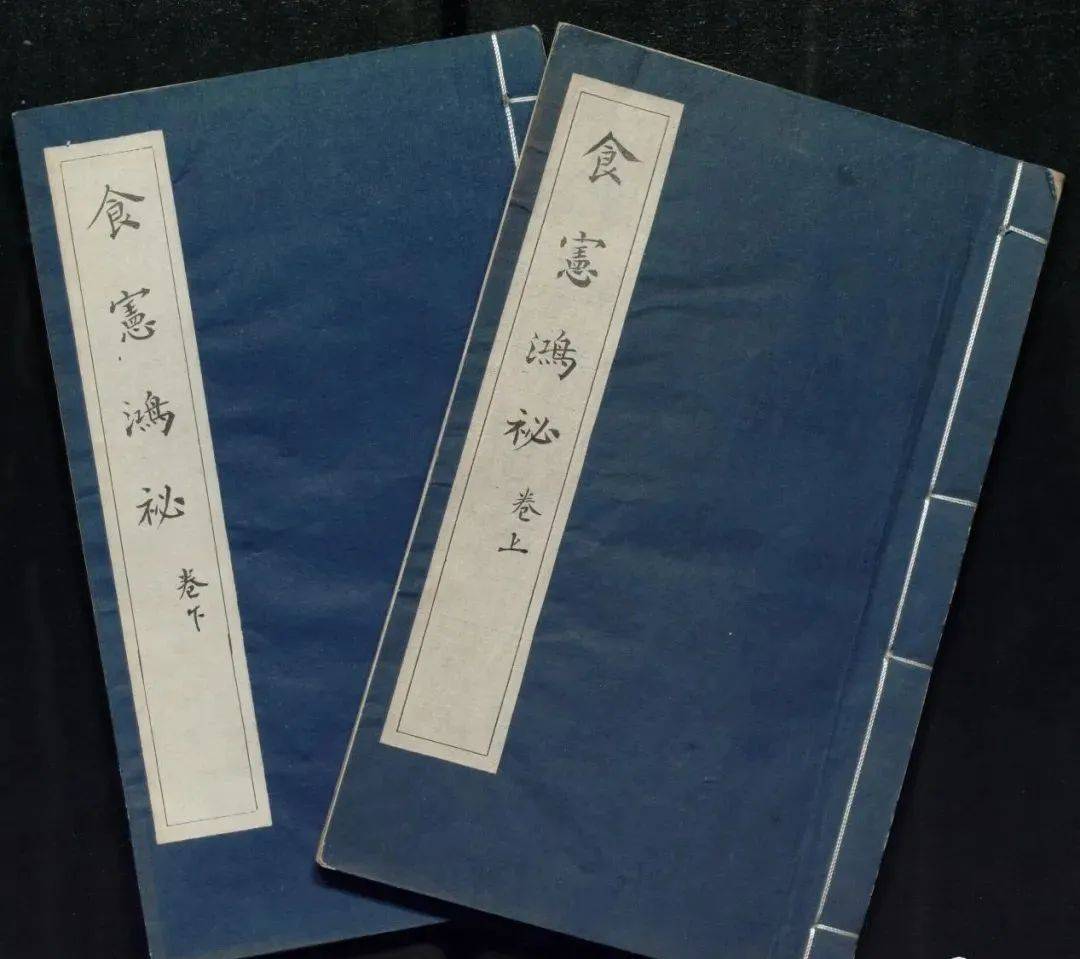 食憲鴻祕
卷上
食憲鴻祕
卷下